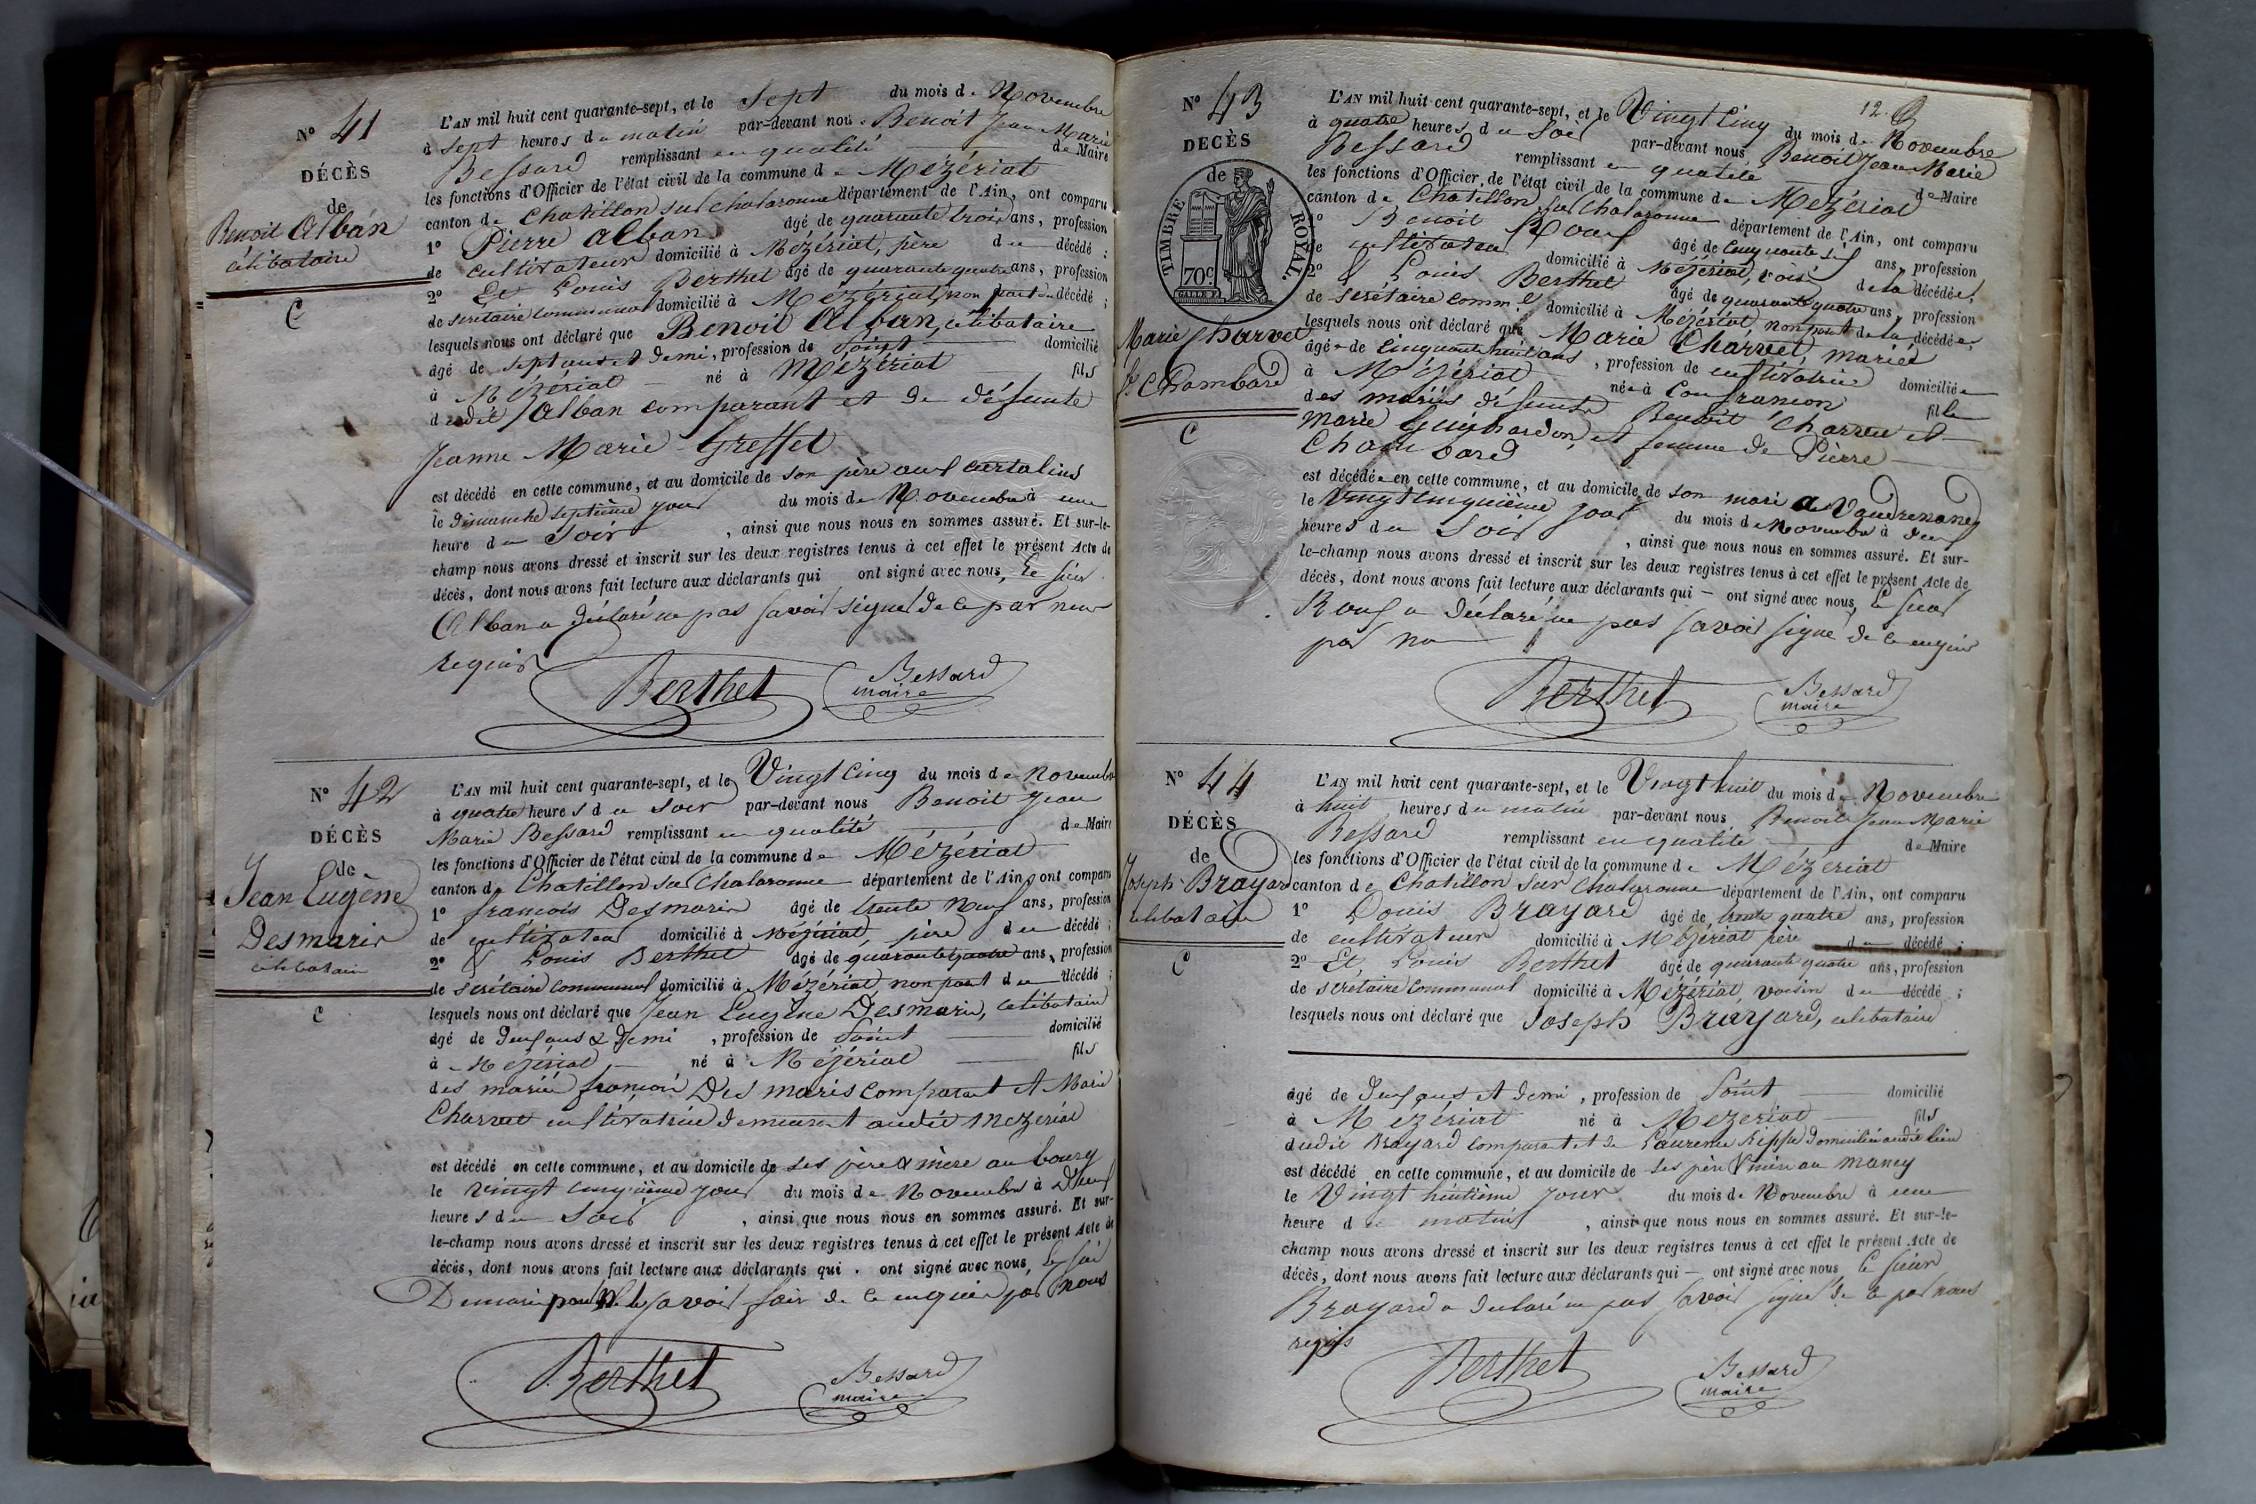 N° 41
DÉCÈS
de
Benoit Alban
célibataire
C
L'AN mil huit cent quarante-sept, et le Sept du mois de Novembre
à Sept heures du matin par-devant nous Benoit Jean Marie
Bessard remplissant en qualité de Maire
les fonctions d'Officier de l'état civil de la commune de Mézériat
canton de Chatillon sur Chalaronne département de l'Ain, ont comparu
1° Pierre Alban âgé de quarante trois ans, profession
de cultivateur domicilié à Mézériat, père du décédé ;
2° Et Louis Berthet âgé de quarante quatre ans, profession
de secrétaire communal domicilié à Mézériat, non part du décédé ;
lesquels nous ont déclaré que Benoit Alban, célibataire
âgé de sept ans et demi, profession de Point domicilié
à Mézériat né à Mézériat fils
dudit Alban comparant et de défunte
Jeanne Marie Greffet
est décédé en cette commune, et au domicile de son père aux
le dimanche septième jour du mois de Novembre à une
heure du Soir, ainsi que nous nous en sommes assuré. Et sur-le-
champ nous avons dressé et inscrit sur les deux registres tenus à cet effet le présent Acte de
décès, dont nous avons fait lecture aux déclarants qui ont signé avec nous, Le sieur
Alban a déclaré ne pas savoir signer de ce par nous
requis
Berthet Bessard
maire
N° 42
DÉCÈS
de
Jean Eugène
Desmaris
célibataire
C
L'AN mil huit cent quarante-sept, et le Vingt cinq du mois de Novembre
à quatre heures du soir par-devant nous Benoit Jean
Marie Bessard remplissant en qualité de Maire
les fonctions d'Officier de l'état civil de la commune de Mézériat
canton de Chatillon sur Chalaronne département de l'Ain, ont comparu
1° françois Desmaris âgé de trente neuf ans, profession
de cultivateur domicilié à Mézériat, père du décédé ;
2° & Louis Berthet âgé de quarante quatre ans, profession
de secrétaire communal domicilié à Mézériat, non part du décédé ;
lesquels nous ont déclaré que Jean Eugène Desmaris, célibataire
âgé de deux ans & demi, profession de Point domicilié
à Mézériat né à Mézériat fils
des mariés françois Desmaris comparant et Marie
Charvet cultivatrice demeurant audit Mézériat
est décédé en cette commune, et au domicile de ses père & mère au bourg
le vingt cinquième jour du mois de Novembre à Deux
heures du Soir, ainsi que nous nous en sommes assuré. Et sur-
le-champ nous avons dressé et inscrit sur les deux registres tenus à cet effet le présent Acte de
décès, dont nous avons fait lecture aux déclarants qui ont signé avec nous,
savoir fair de ce enquis par nous
Berthet Bessard
maire
12.
N° 43
DECÈS
de
TIMBRE ROYAL.
70c
Marie Charvet
fe Chambard
C
L'AN mil huit cent quarante-sept, et le Vingt Cinq du mois de Novembre
à quatre heures du Soir par-devant nous Benoit Jean Marie
Bessard remplissant en qualité de Maire
les fonctions d'Officier de l'état civil de la commune de Mézériat
canton de Chatillon sur Chalaronne département de l'Ain, ont comparu
1° Benoit Roux âgé de Cinquante six ans, profession
de cultivateur domicilié à Mézériat, voisin de la décédée,
2° & Louis Berthet âgé de quarante quatre ans, profession
de secrétaire comm.l domicilié à Mézériat, non part de la décédée,
lesquels nous ont déclaré que Marie Charvet, mariée
âgée de Cinquante huit ans, profession de cultivatrice domiciliée
à Mézériat née à Confrançon fille
des mariés défunts Benoit Charvet et
Marie Guichardon, et femme de Pierre
Chambard
est décédée en cette commune, et au domicile de son mari à Vaudrenand
le Vingt cinquième jour du mois de Novembre à deux
heures du Soir, ainsi que nous nous en sommes assuré. Et sur-
le-champ nous avons dressé et inscrit sur les deux registres tenus à cet effet le présent Acte de
décès, dont nous avons fait lecture aux déclarants qui – ont signé avec nous, le sieur
Roux a déclaré ne pas savoir signé de ce enquis
par no
Berthet Bessard
maire
N° 44
DÉCÈS
de
Joseph Brayard
célibataire
C
L'AN mil huit cent quarante-sept, et le Vingt huit du mois de Novembre
à huit heures du matin par-devant nous Benoit Jean Marie
Bessard remplissant en qualité de Maire
les fonctions d'Officier de l'état civil de la commune de Mézériat
canton de Chatillon sur Chalaronne département de l'Ain, ont comparu
1° Louis Brayard âgé de trente quatre ans, profession
de cultivateur domicilié à Mézériat père du décédé ;
2° Et Louis Berthet âgé de quarante quatre ans, profession
de secrétaire Communal domicilié à Mézériat, voisin du décédé ;
lesquels nous ont déclaré que Joseph Brayard, célibataire
âgé de deux ans et demi, profession de Point domicilié
à Mézériat né à Mézériat fils
dudit Brayard comparant et de Laurence domiciliée audit lieu
est décédé en cette commune, et au domicile de ses père & mère au mancy
le Vingt huitième jour du mois de Novembre à une
heure du matin, ainsi que nous nous en sommes assuré. Et sur-le-
champ nous avons dressé et inscrit sur les deux registres tenus à cet effet le présent Acte de
décès, dont nous avons fait lecture aux déclarants qui – ont signé avec nous le sieur
Brayard a declaré ne pas savoir signé de ce par nous
requis
Berthet Bessard
maire